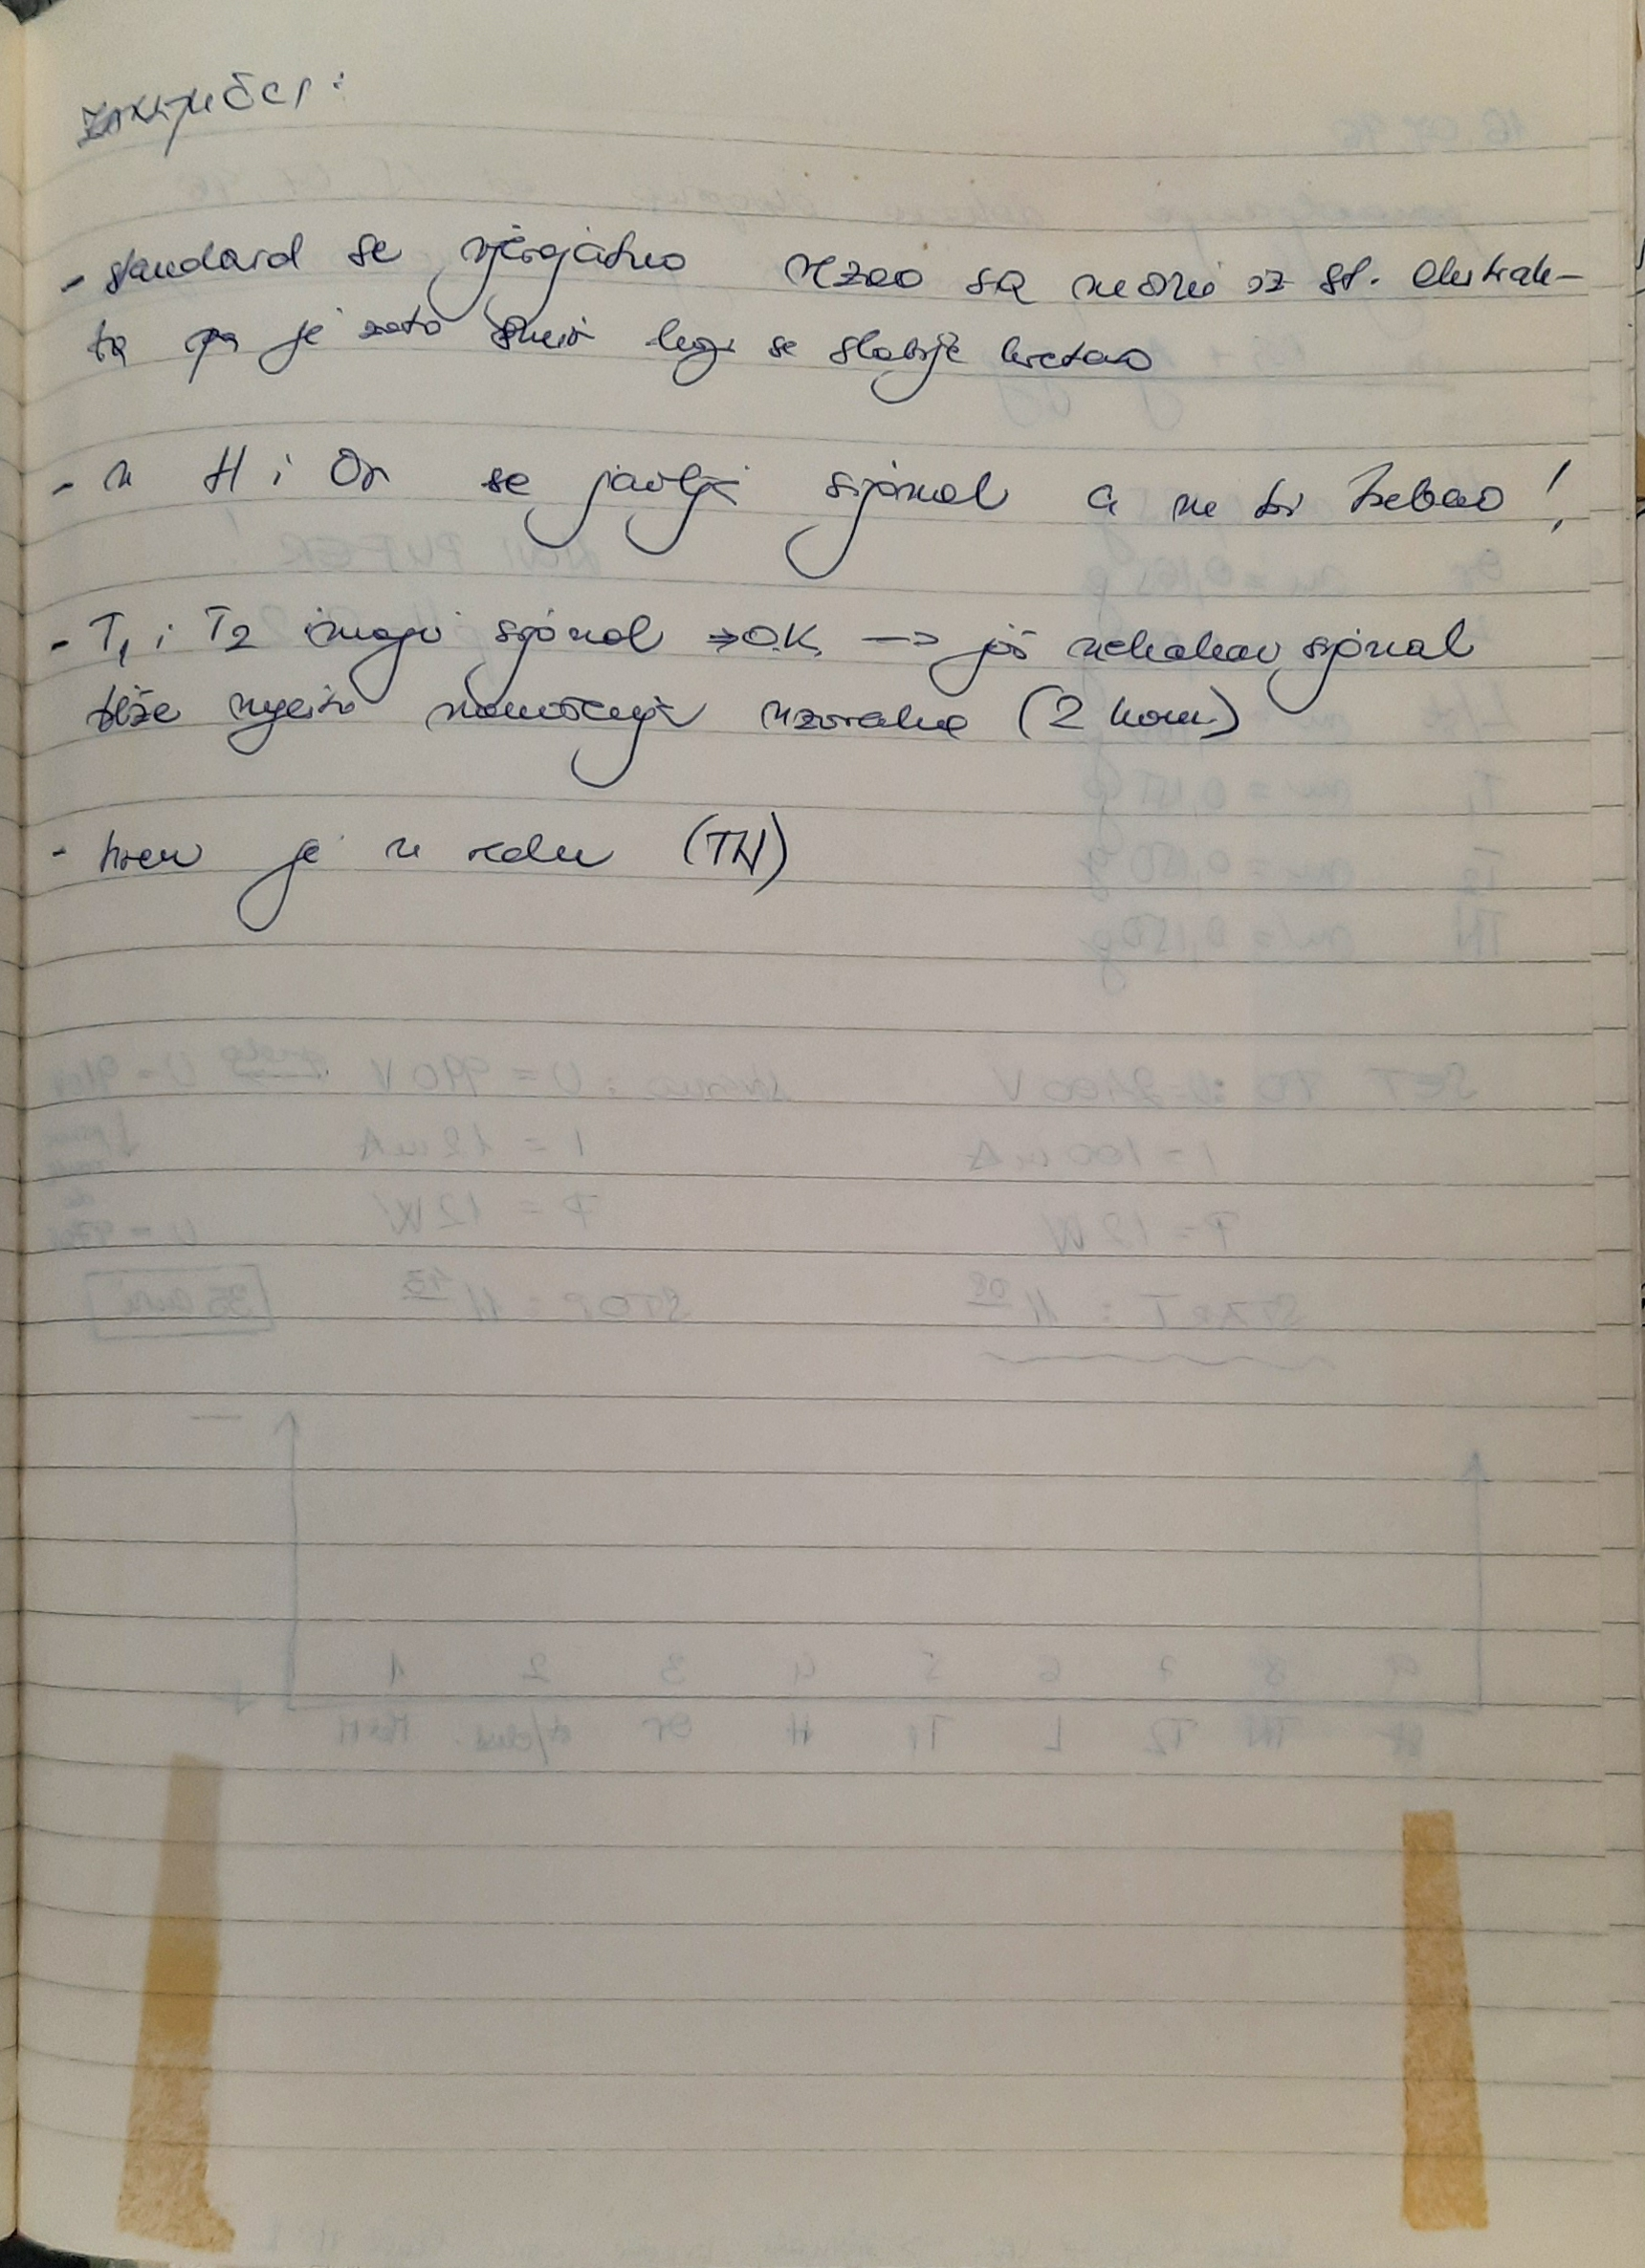 Zaključci:
- standard se vjerojatno vezao sa nečim iz st. ekstrak-
ta pa je zato širi i se slabije kretao
- u H i Or se javlja signal a ne bi trebao!
- T1 i T2 imaju signal → O.K. → još nekakav signal
bliže mjestu nanošenja uzoraka (2 kom)
- krv je u redu (TN)